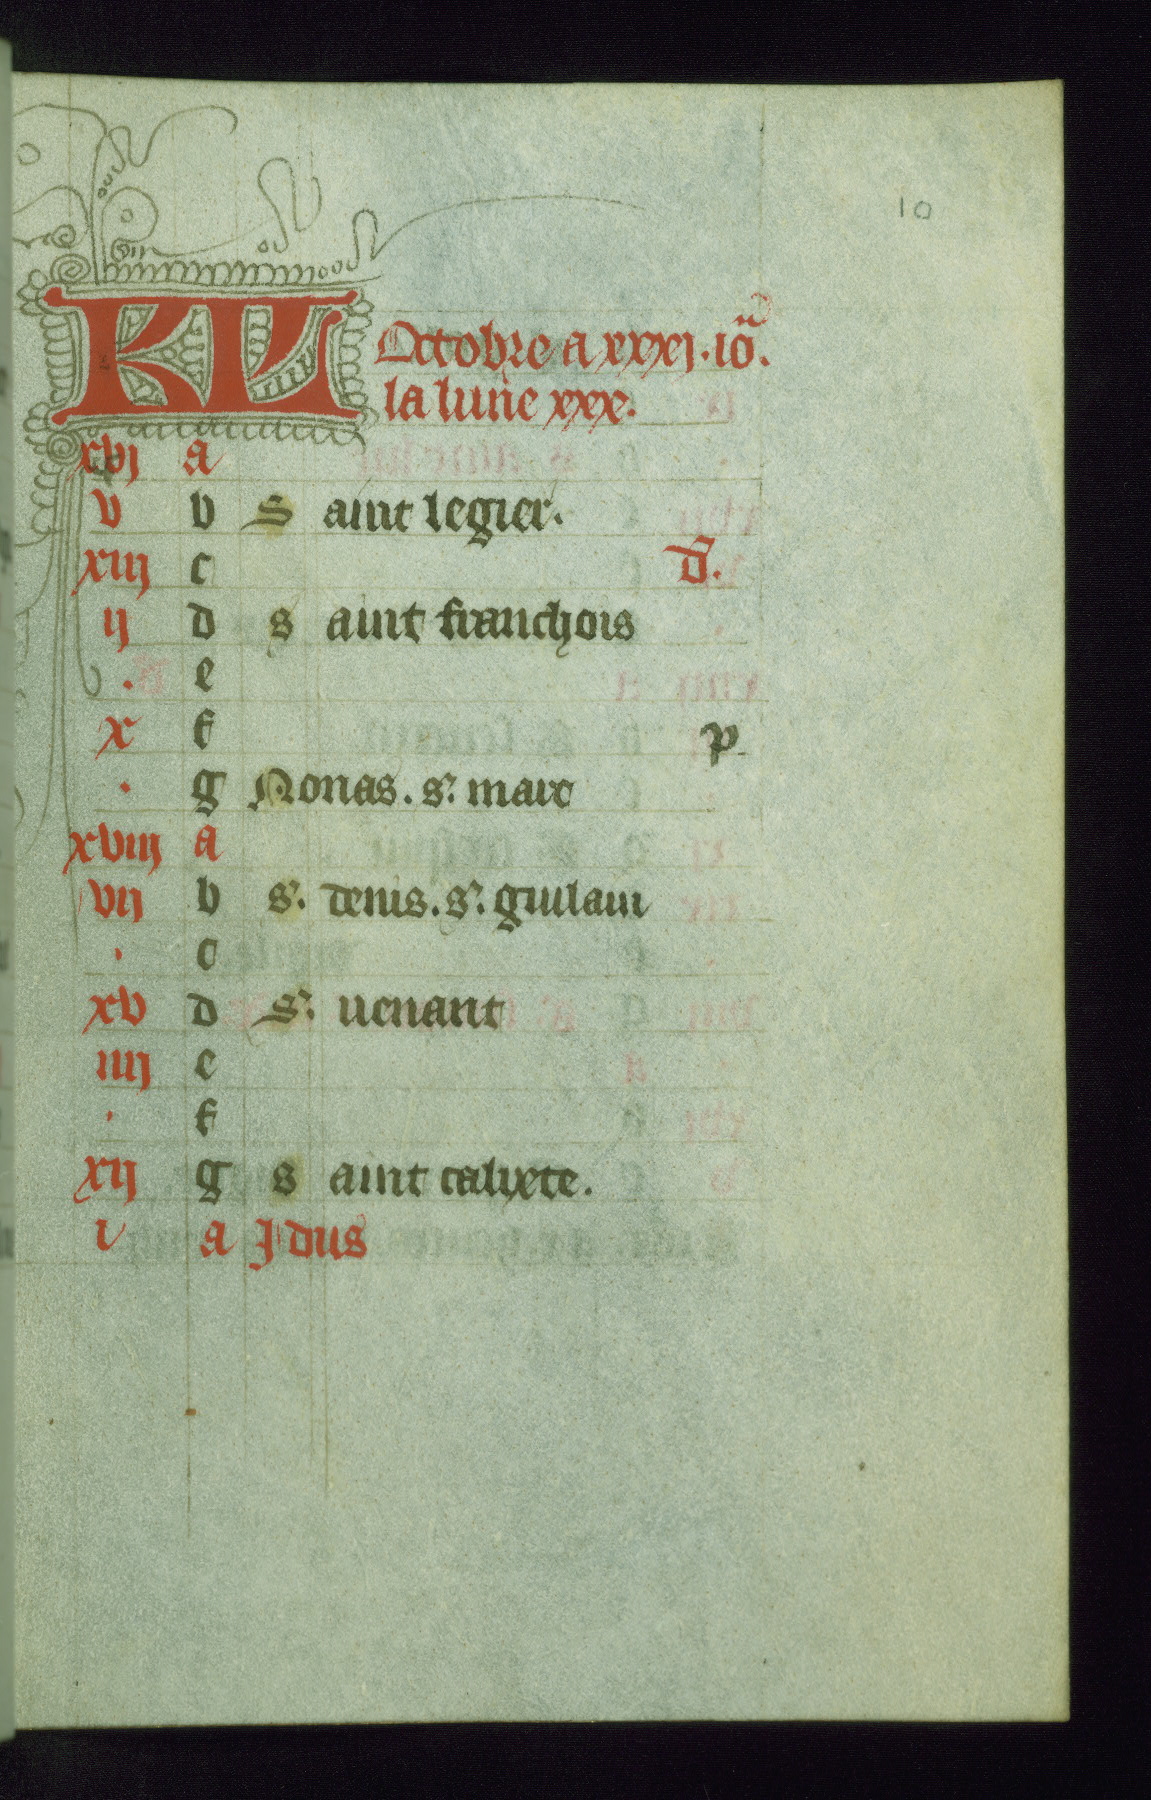 10
KL Octobre a xxxj. io᷒.
la lune xxx.
xvj a
v b S aint legier.
xiij c D.
ij d s aint franchois
. e
x f p
. g Nonas. s. marc
xviij a
vij b s. denis. s. guilain
. c
xv d s. venant
iiij e
. f
xij g s aint calixte.
i a Idus